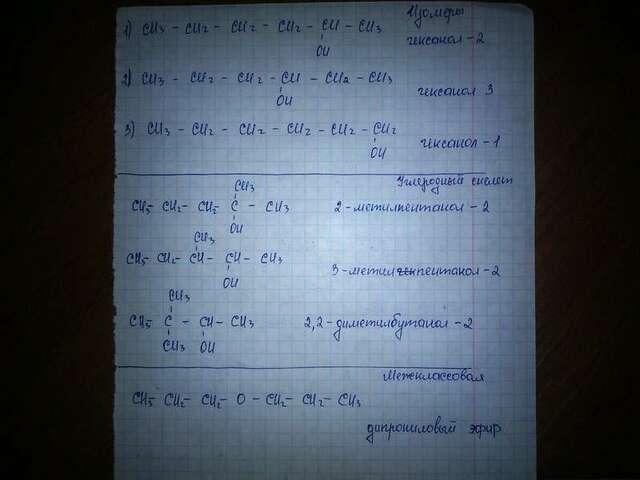 Изомеры
1) CH3 - CH2 - CH2 - CH2 - CH - CH3
OH
гексанол - 2
2) CH3 - CH2 - CH2 - CH - CH2 - CH3
OH
гексанол 3
3) CH3 - CH2 - CH2 - CH2 - CH2 - CH2
OH
гексанол - 1
Углеродный скелет
CH3
CH3- CH2 - CH2- C - CH3
OH
2 - метилпентанол - 2
CH3
CH3- CH2 - CH - CH - CH3
OH
3 - метилпентанол - 2
CH3
CH3- C - CH - CH3
CH3 OH
2,2 - диметилбутанол - 2
Межклассовая
CH3- CH2- CH2- O - CH2- CH2- CH3
дипропиловый эфир